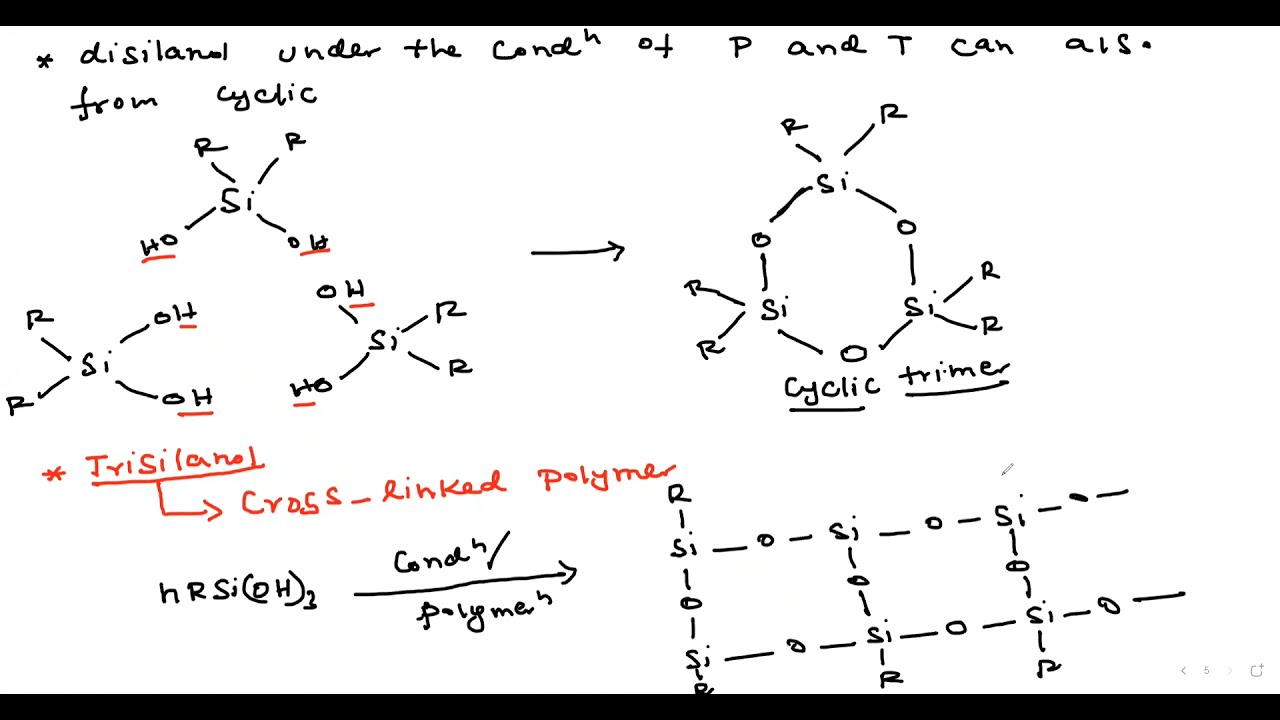 * disilanol under the condⁿ of P and T can als.
from cyclic
R R
Si
HO OH
R OH
Si
R OH
OH
Si R
HO R
R R
Si
O O
R Si Si R
R O R
cyclic trimer
* Trisilanol
→ Cross-linked polymer
nRSi(OH)3
Condⁿ/
polymerⁿ
R
Si — O — Si — O — Si — —
O O O
Si — O — Si — O — Si — O —
R R R
5